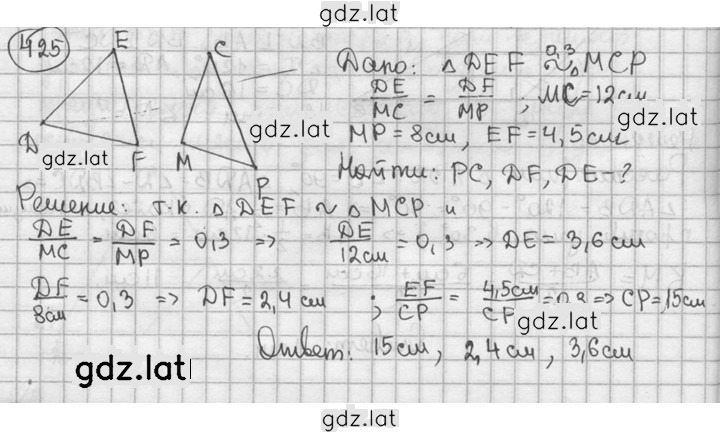 gdz.lat
425
E
C
D
F
M
P
gdz.lat
Дано: △DEF ∾^0,3 △MCP
DE/MC = DF/MP, MC=12см
gdz.lat
MP=8см, EF=4,5см
Найти: PC, DF, DE-?
Решение: т.к. △DEF ∾ △MCP и
DE/MC = DF/MP = 0,3 => DE/12см = 0,3 => DE = 3,6см
DF/8см = 0,3 => DF = 2,4см ; EF/CP = 4,5см/CP = => CP = 15см
gdz.lat
Ответ: 15см, 2,4см, 3,6см
gdz.lat
gdz.lat